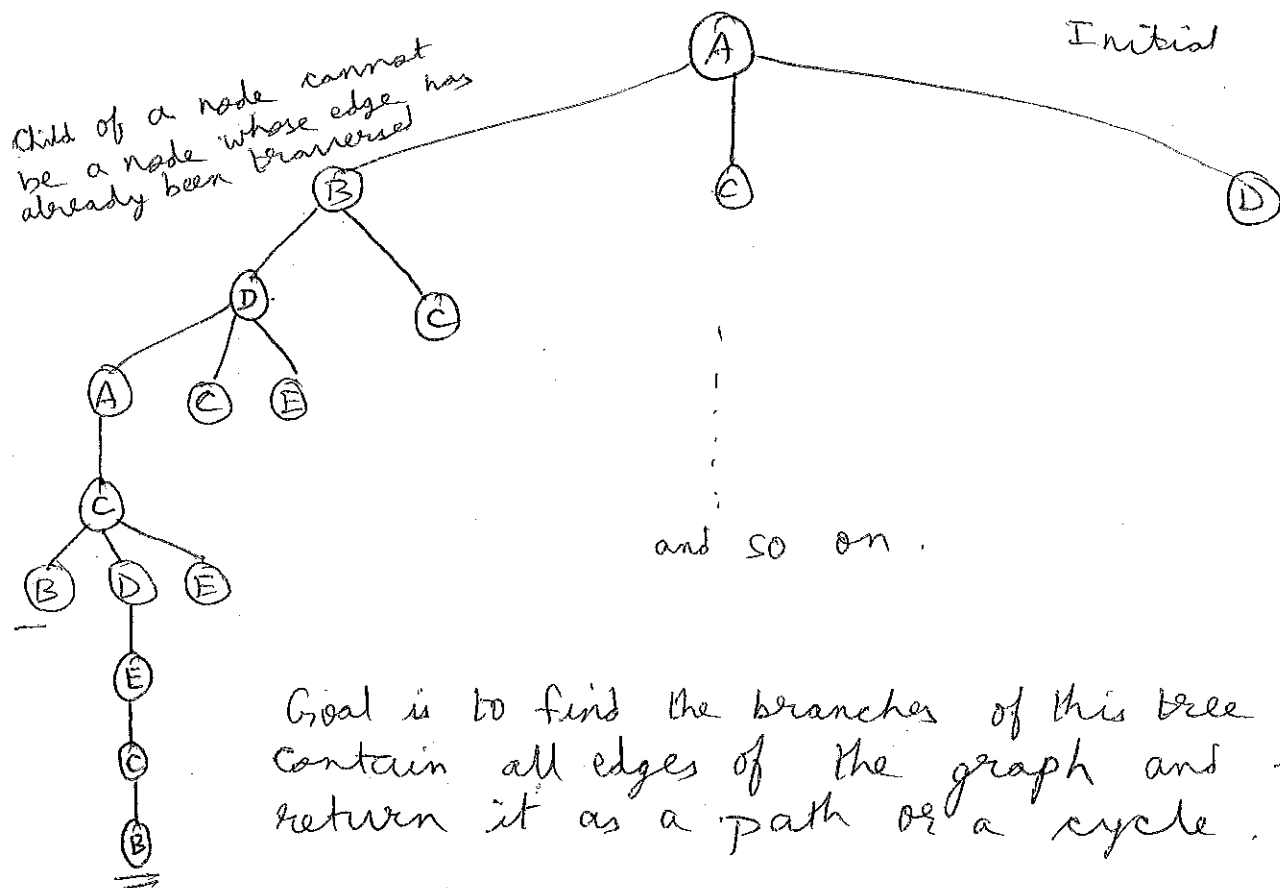 A
Initial
Child of a node cannot
be a node whose edge has
already been traversed
B
C
D
D
C
A
C
E
C
and so on.
B
D
E
E
C
B
Goal is to find the branches of this tree
contain all edges of the graph and
return it as a path or a cycle.